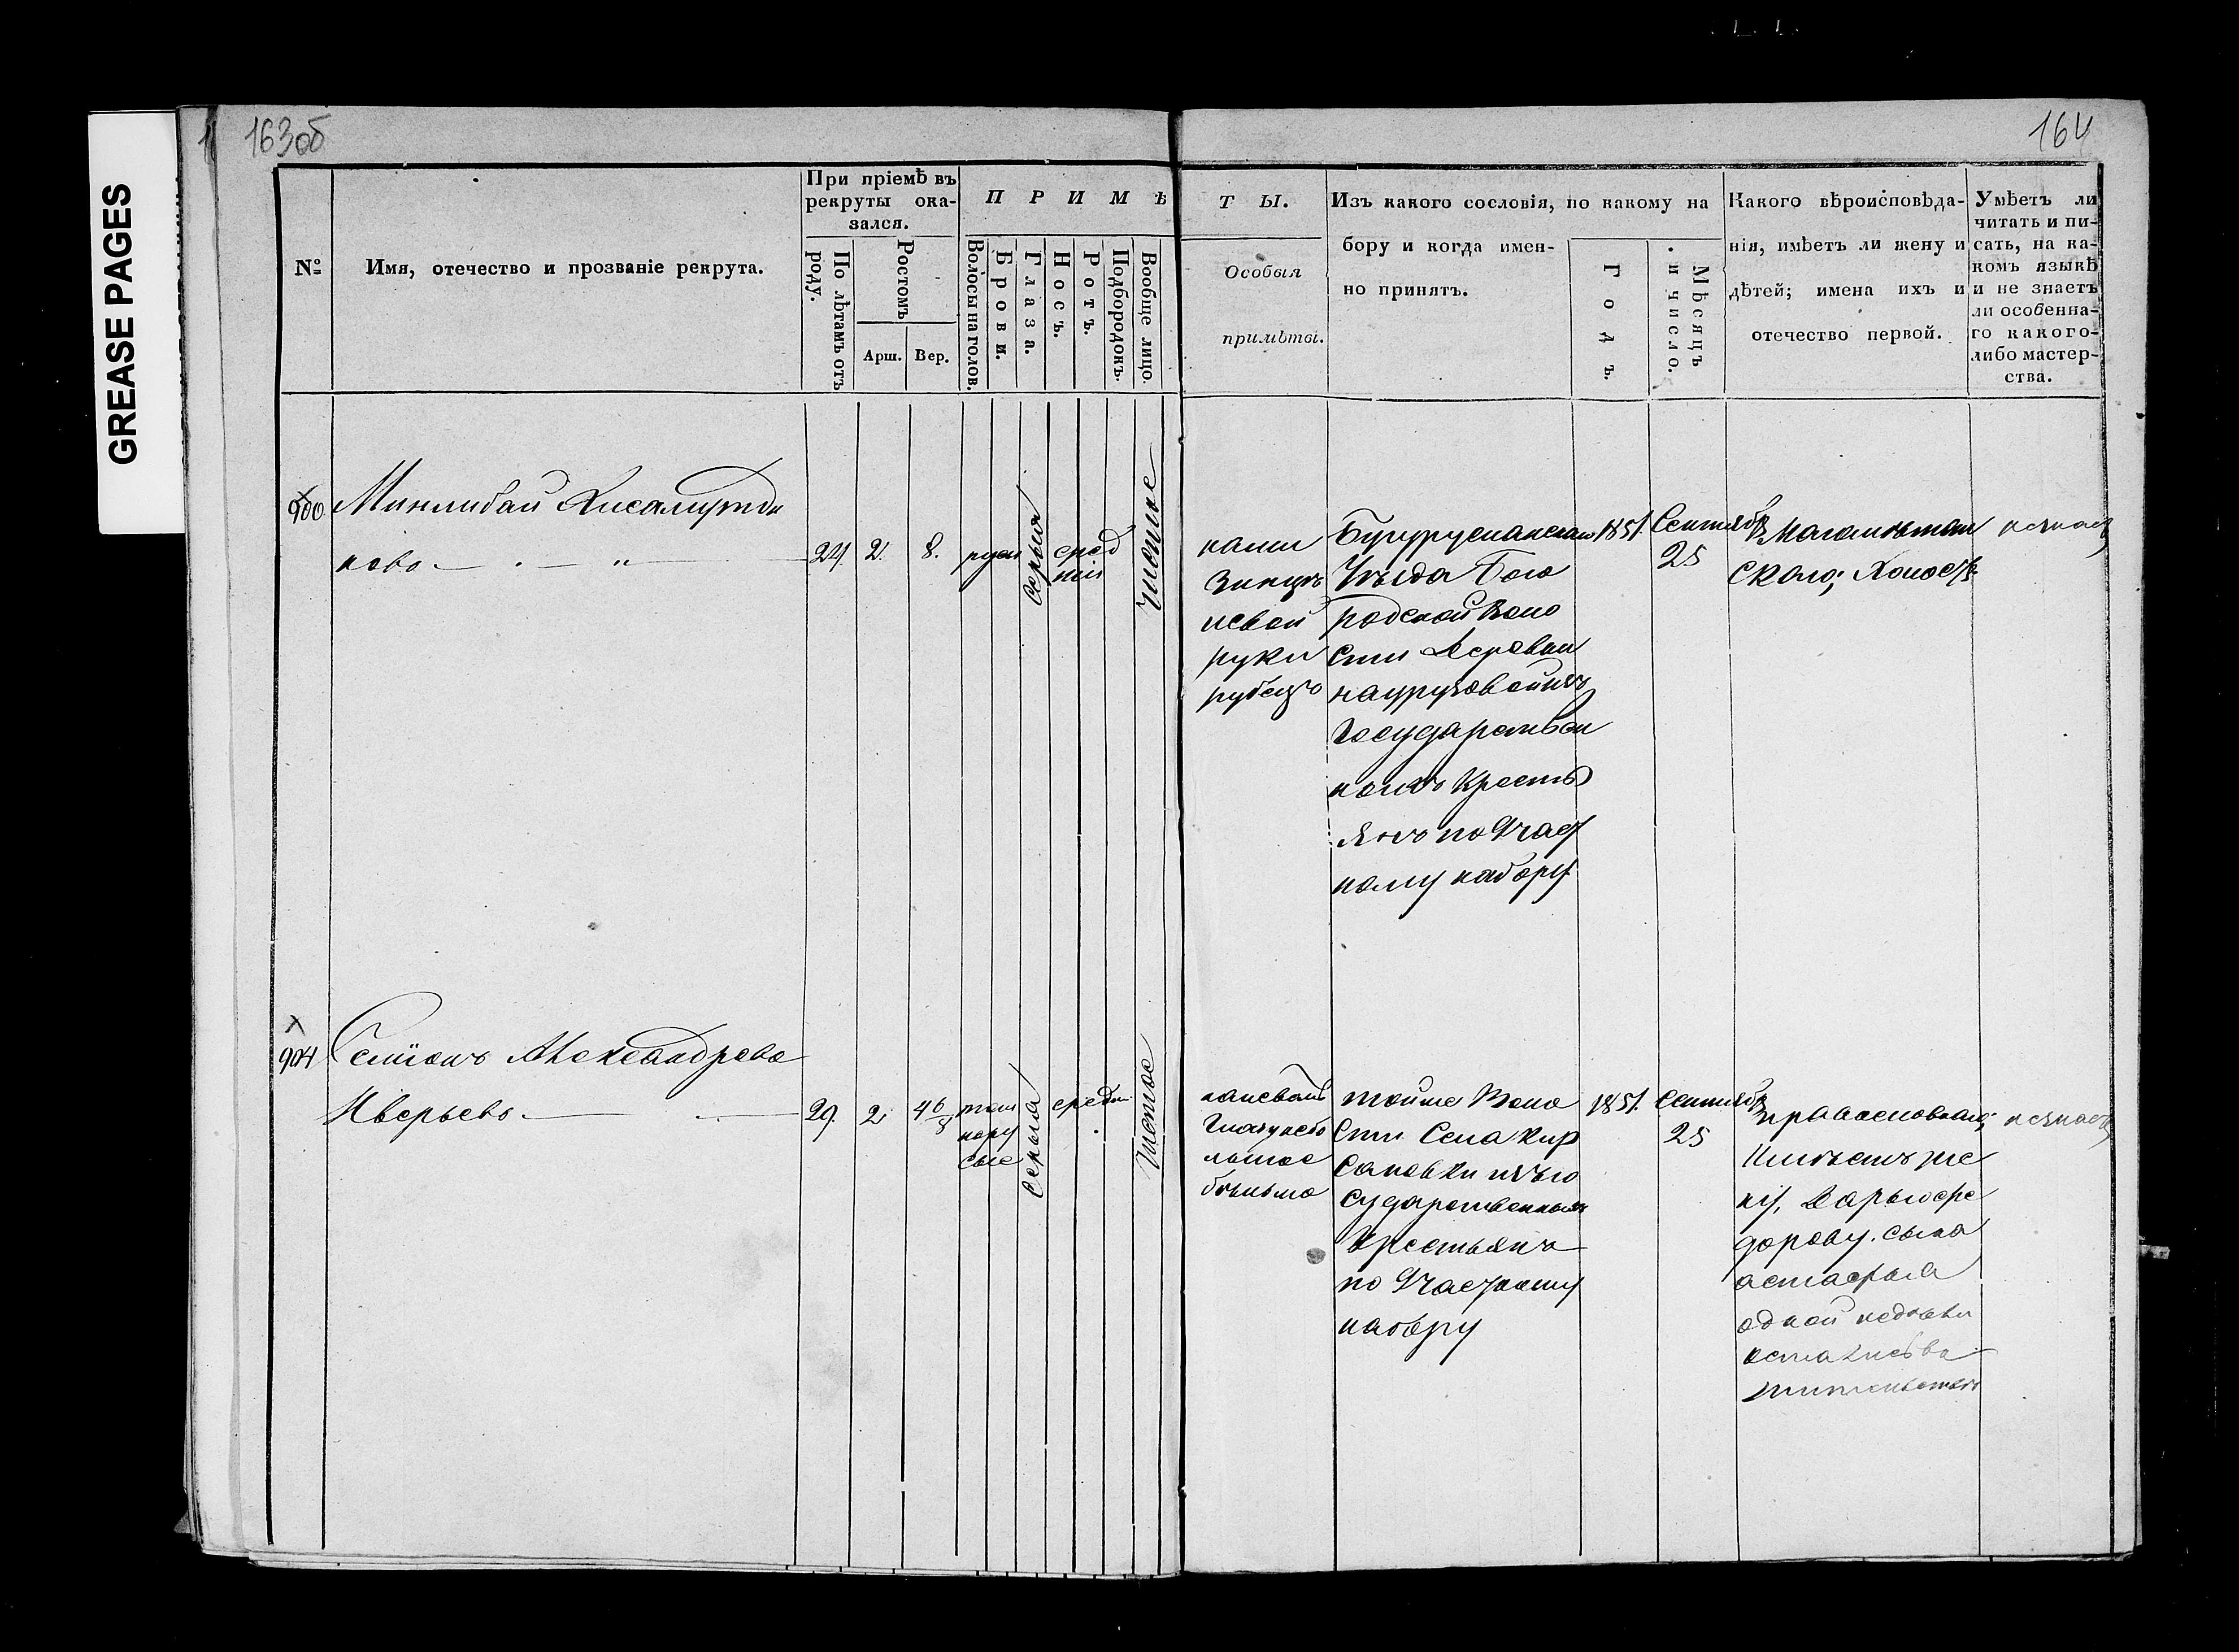 163об
164
GREASE PAGES
№
Имя, отечество и прозваніе рекрута.
При пріемѣ въ
рекруты ока-
зался.
По лѣтамъ отъ
роду.
Ростомъ
Арш.
Вер.
П Р И М Ѣ
Волосы на голов.
Брови.
Глаза.
Носъ.
Ротъ.
Подбородокъ.
Вообще лицо.
Т Ы.
Особыя
примѣты.
Изъ какого сословія, по какому на
бору и когда имен-
но принятъ.
Годъ.
Мѣсяцъ
и число.
Какого вѣроисповѣда-
нія, имѣетъ ли жену и
дѣтей; имена ихъ и
отечество первой.
Умѣетъ ли
читать и пи-
сать, на ка-
комъ языкѣ
и не знаетъ
ли особенна-
го какого-
либо мастер-
ства.
900
Минлибай Хисамутди
ново
24 2 8. русы
Серыя
сред
нiя
Чистое
на
левой
руки
рубецъ
Бугурусланскаго
Уѣзда Бого
родской Воло
сти Деревни
Наурузовой изъ
Государствен
ныхъ Кресть
янъ по Участ
ному набору
1851.
Сентября
25
Магаметан
ского; Холостъ
незнаетъ
904
Семіонъ Александрово
Аверьево
29. 2 4 6/8
темно
русые
Серыя
средн.
Чистое
на левомъ
глазу небо
льшое
бельмо
тойже Воло
сти Села Кир
сановки изъ го
сударственныхъ
Крестьянъ
по Участному
набору
1851.
Сентября
25
православнаго;
Имѣетъ же
ну, Дарью Фе
дорову. сына
Астафья
одной недѣли
незнаетъ